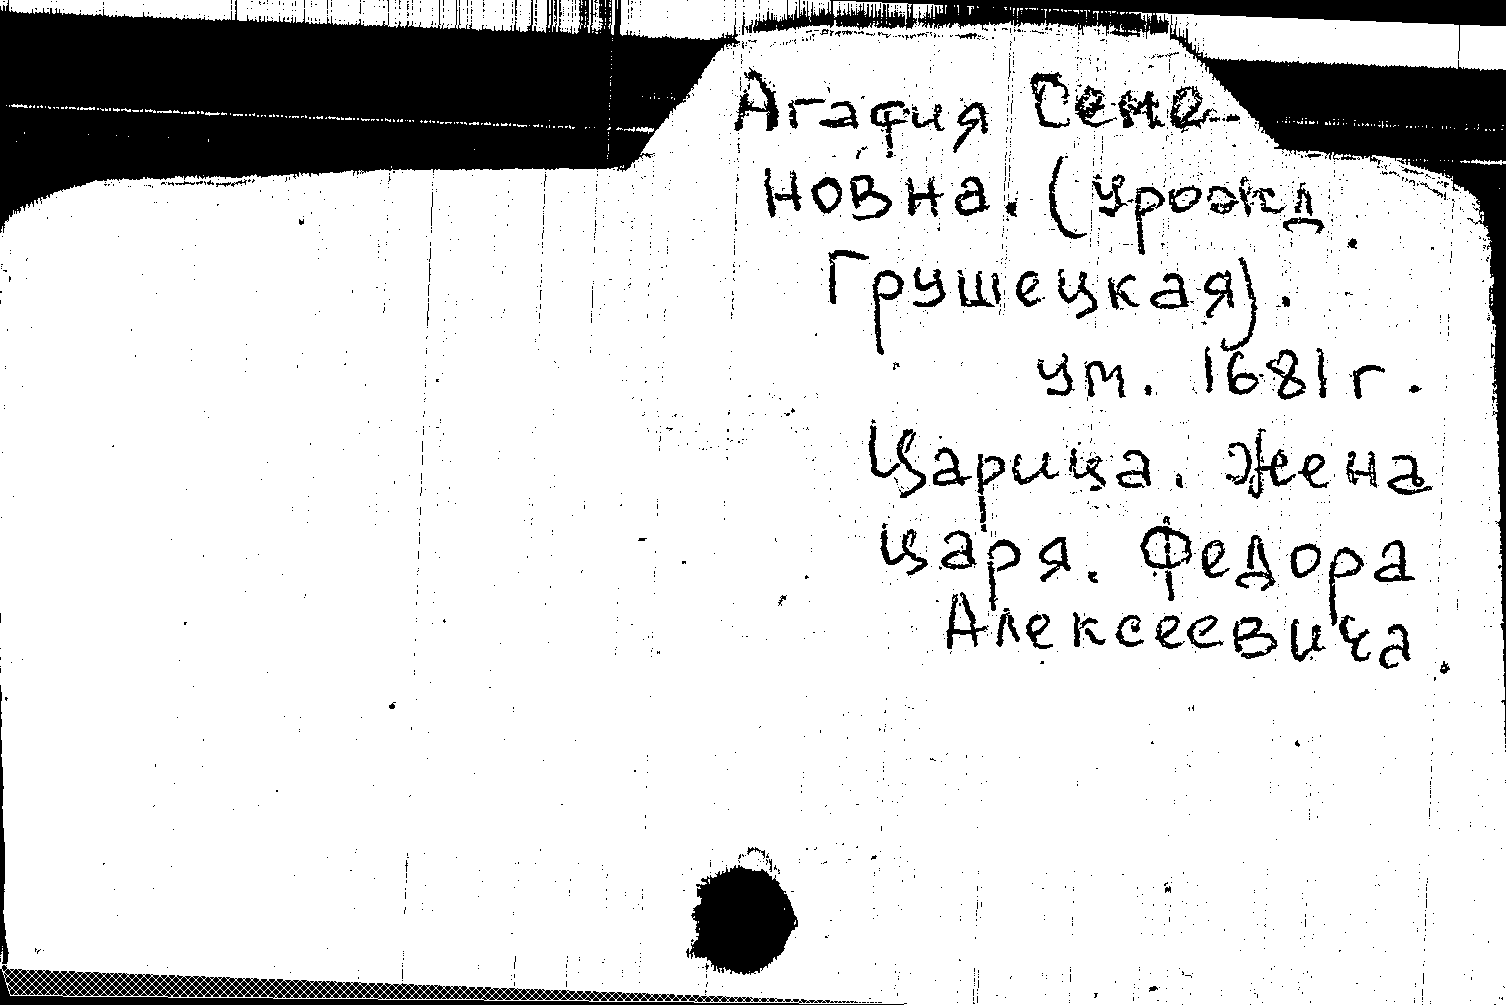 Агафия Семе-
новна. (урожд.
Грушецкая).
ум. 1681 г.
Царица. Жена
царя. Федора
Алексеевича.